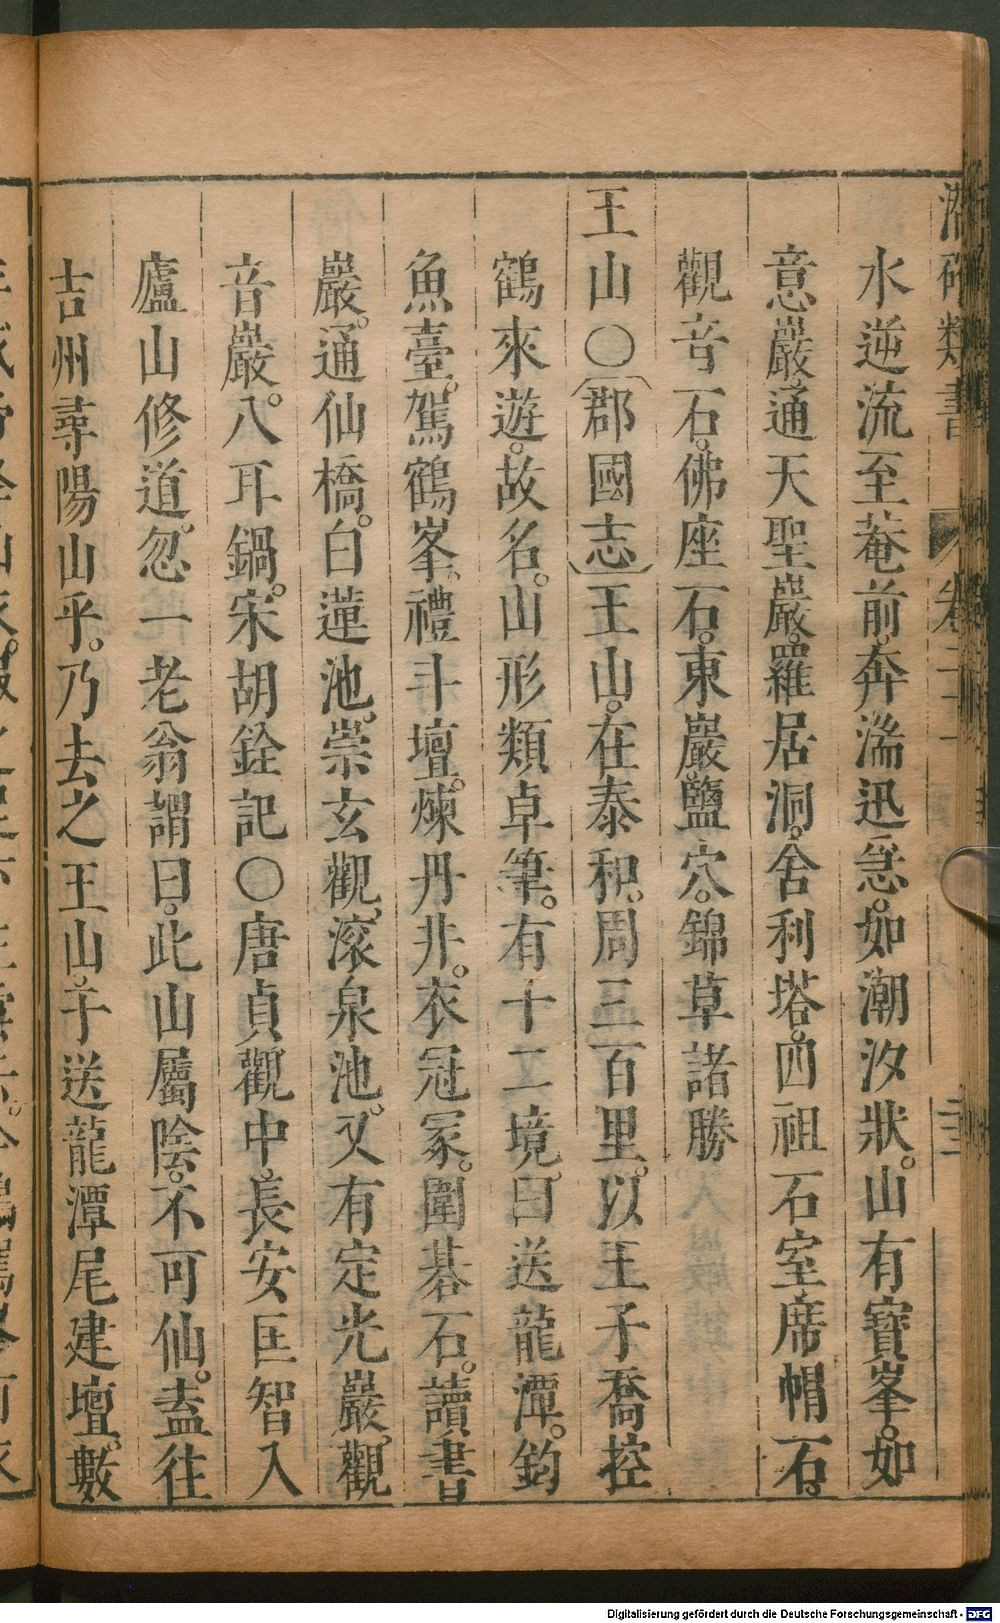 潛確類書 卷二十
水逆流至菴前。奔湍迅急。如潮汐狀。山有寶峯。如
意巖。通天聖巖。羅居洞。舍利塔。四祖石室席帽石。
觀音石。佛座石。東巖。鹽穴。錦草諸勝
王山〇〔郡國志〕王山。在泰和。周三百里。以王子喬控
鶴來遊。故名。山形類卓筆。有十二境。曰送龍潭。鈞
魚臺。駕鶴峯。禮斗壇。煉丹井。衣冠冢。圍碁石。讀書
巖。通仙橋。白蓮池。崇玄觀。滚泉池。又有定光巖。觀
音巖。八耳鍋。宋胡銓記〇唐貞觀中。長安匡智入
廬山修道。忽一老翁謂曰。此山屬陰。不可仙。盍往
吉州尋陽山乎。乃去之王山。于送龍潭尾建壇。數
Digitalisierung gefördert durch die Deutsche Forschungsgemeinschaft - DFG